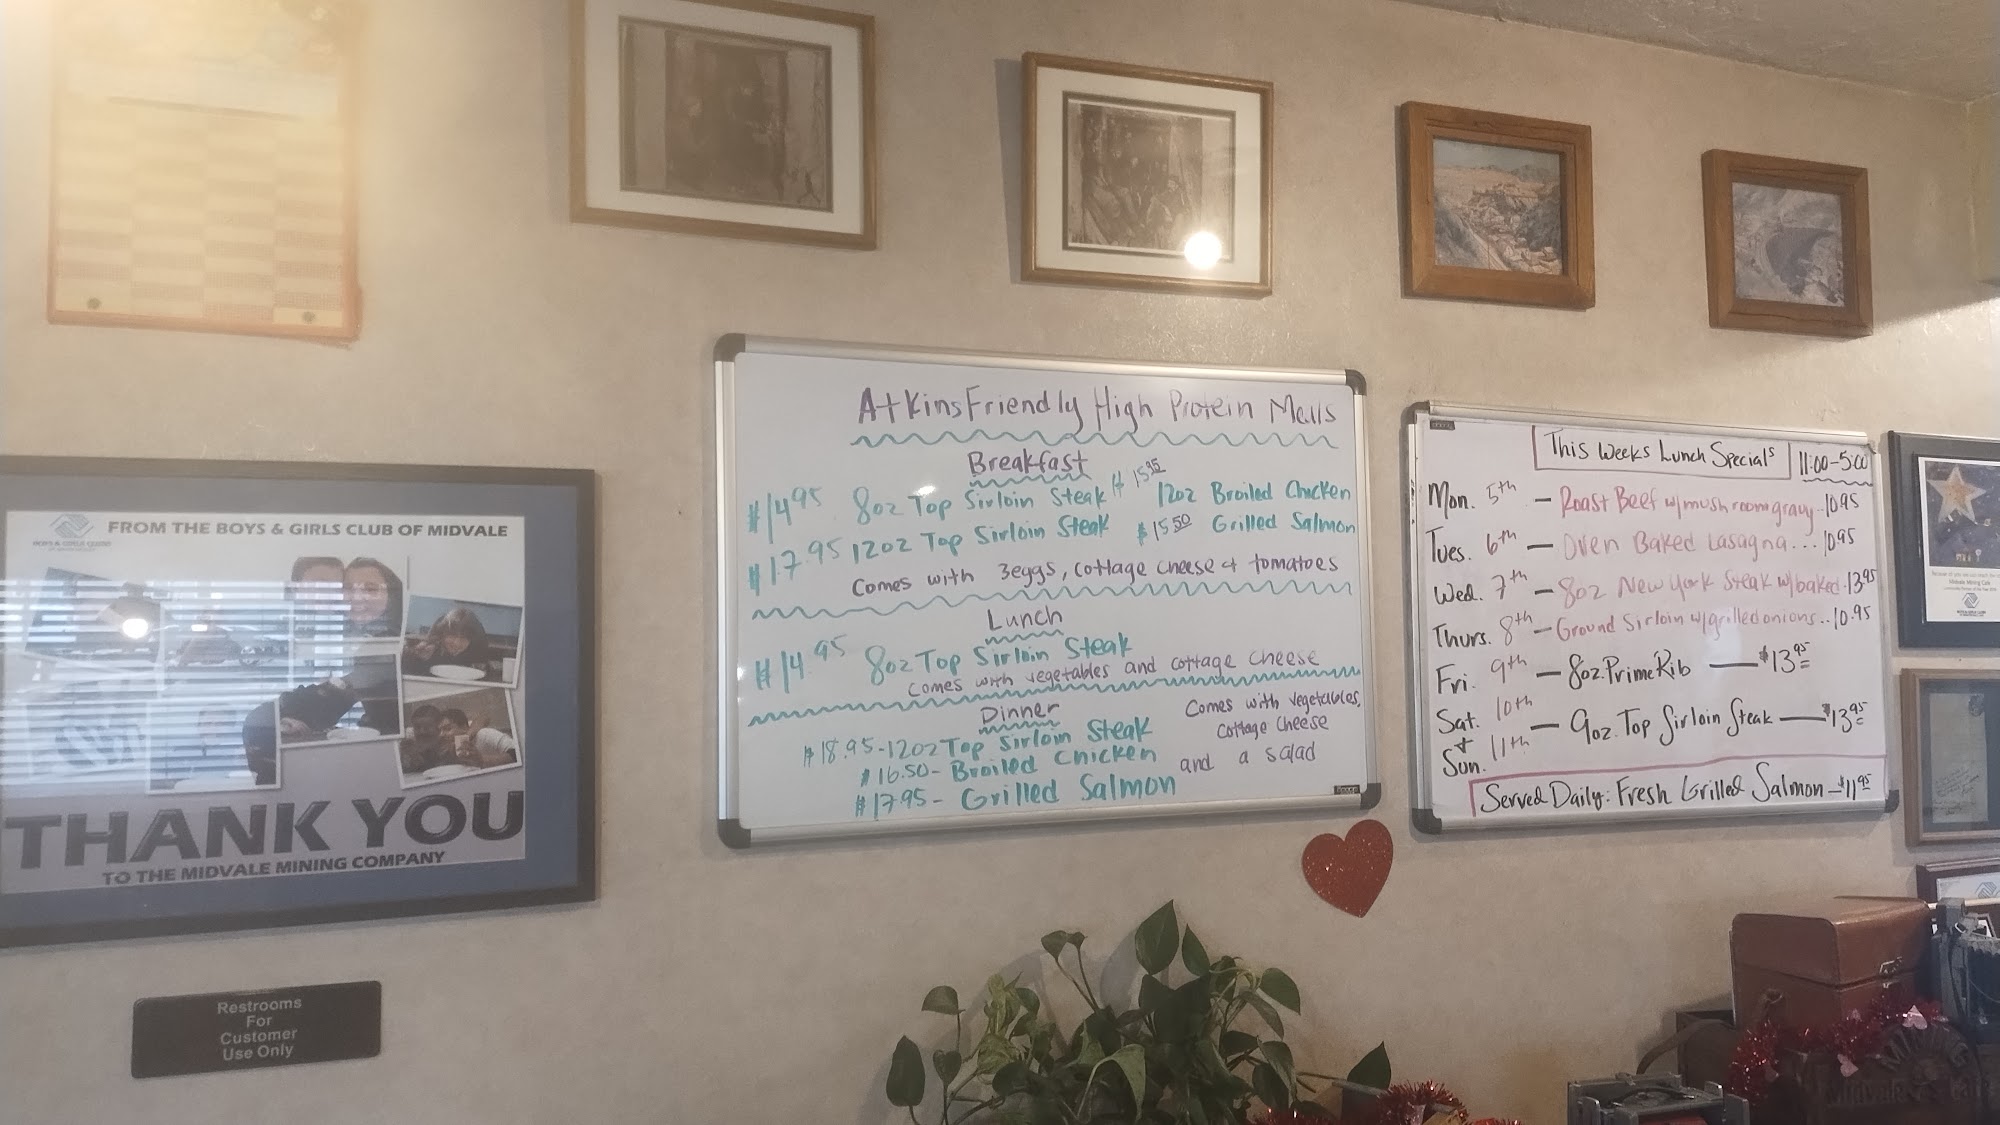 FROM THE BOYS & GIRLS CLUB OF MIDVALE
BOYS & GIRLS CLUBS
THANK YOU
TO THE MIDVALE MINING COMPANY
Restrooms
For
Customer
Use Only
Atkins Friendly High Protein Mells
Breakfast
$14.95 8oz Top Sirloin Steak $15.95 12oz Broiled Chicken
$17.95 12oz Top Sirloin Steak $15.50 Grilled Salmon
Comes with 3eggs, cottage cheese + tomatoes
Lunch
$14.95 8oz Top Sirloin Steak
Comes with vegetables and cottage cheese
Dinner
$18.95-12oz Top Sirloin Steak
$16.50- Broiled Chicken
$17.95- Grilled Salmon
Comes with vegetables,
cottage cheese
and a salad
This Weeks Lunch Specials 11:00-5:00
Mon. 5th - Roast Beef w/mushroom gravy..10.95
Tues. 6th - Oven Baked Lasagna...10.95
Wed. 7th - 8oz New York Steak w/baked.13.95
Thurs. 8th - Ground Sirloin w/grilled onions..10.95
Fri. 9th - 8oz. Prime Rib - $13.95
Sat. 10th
+ - 9oz. Top Sirloin Steak - $13.95
Sun. 11th
Served Daily: Fresh Grilled Salmon - $11.95